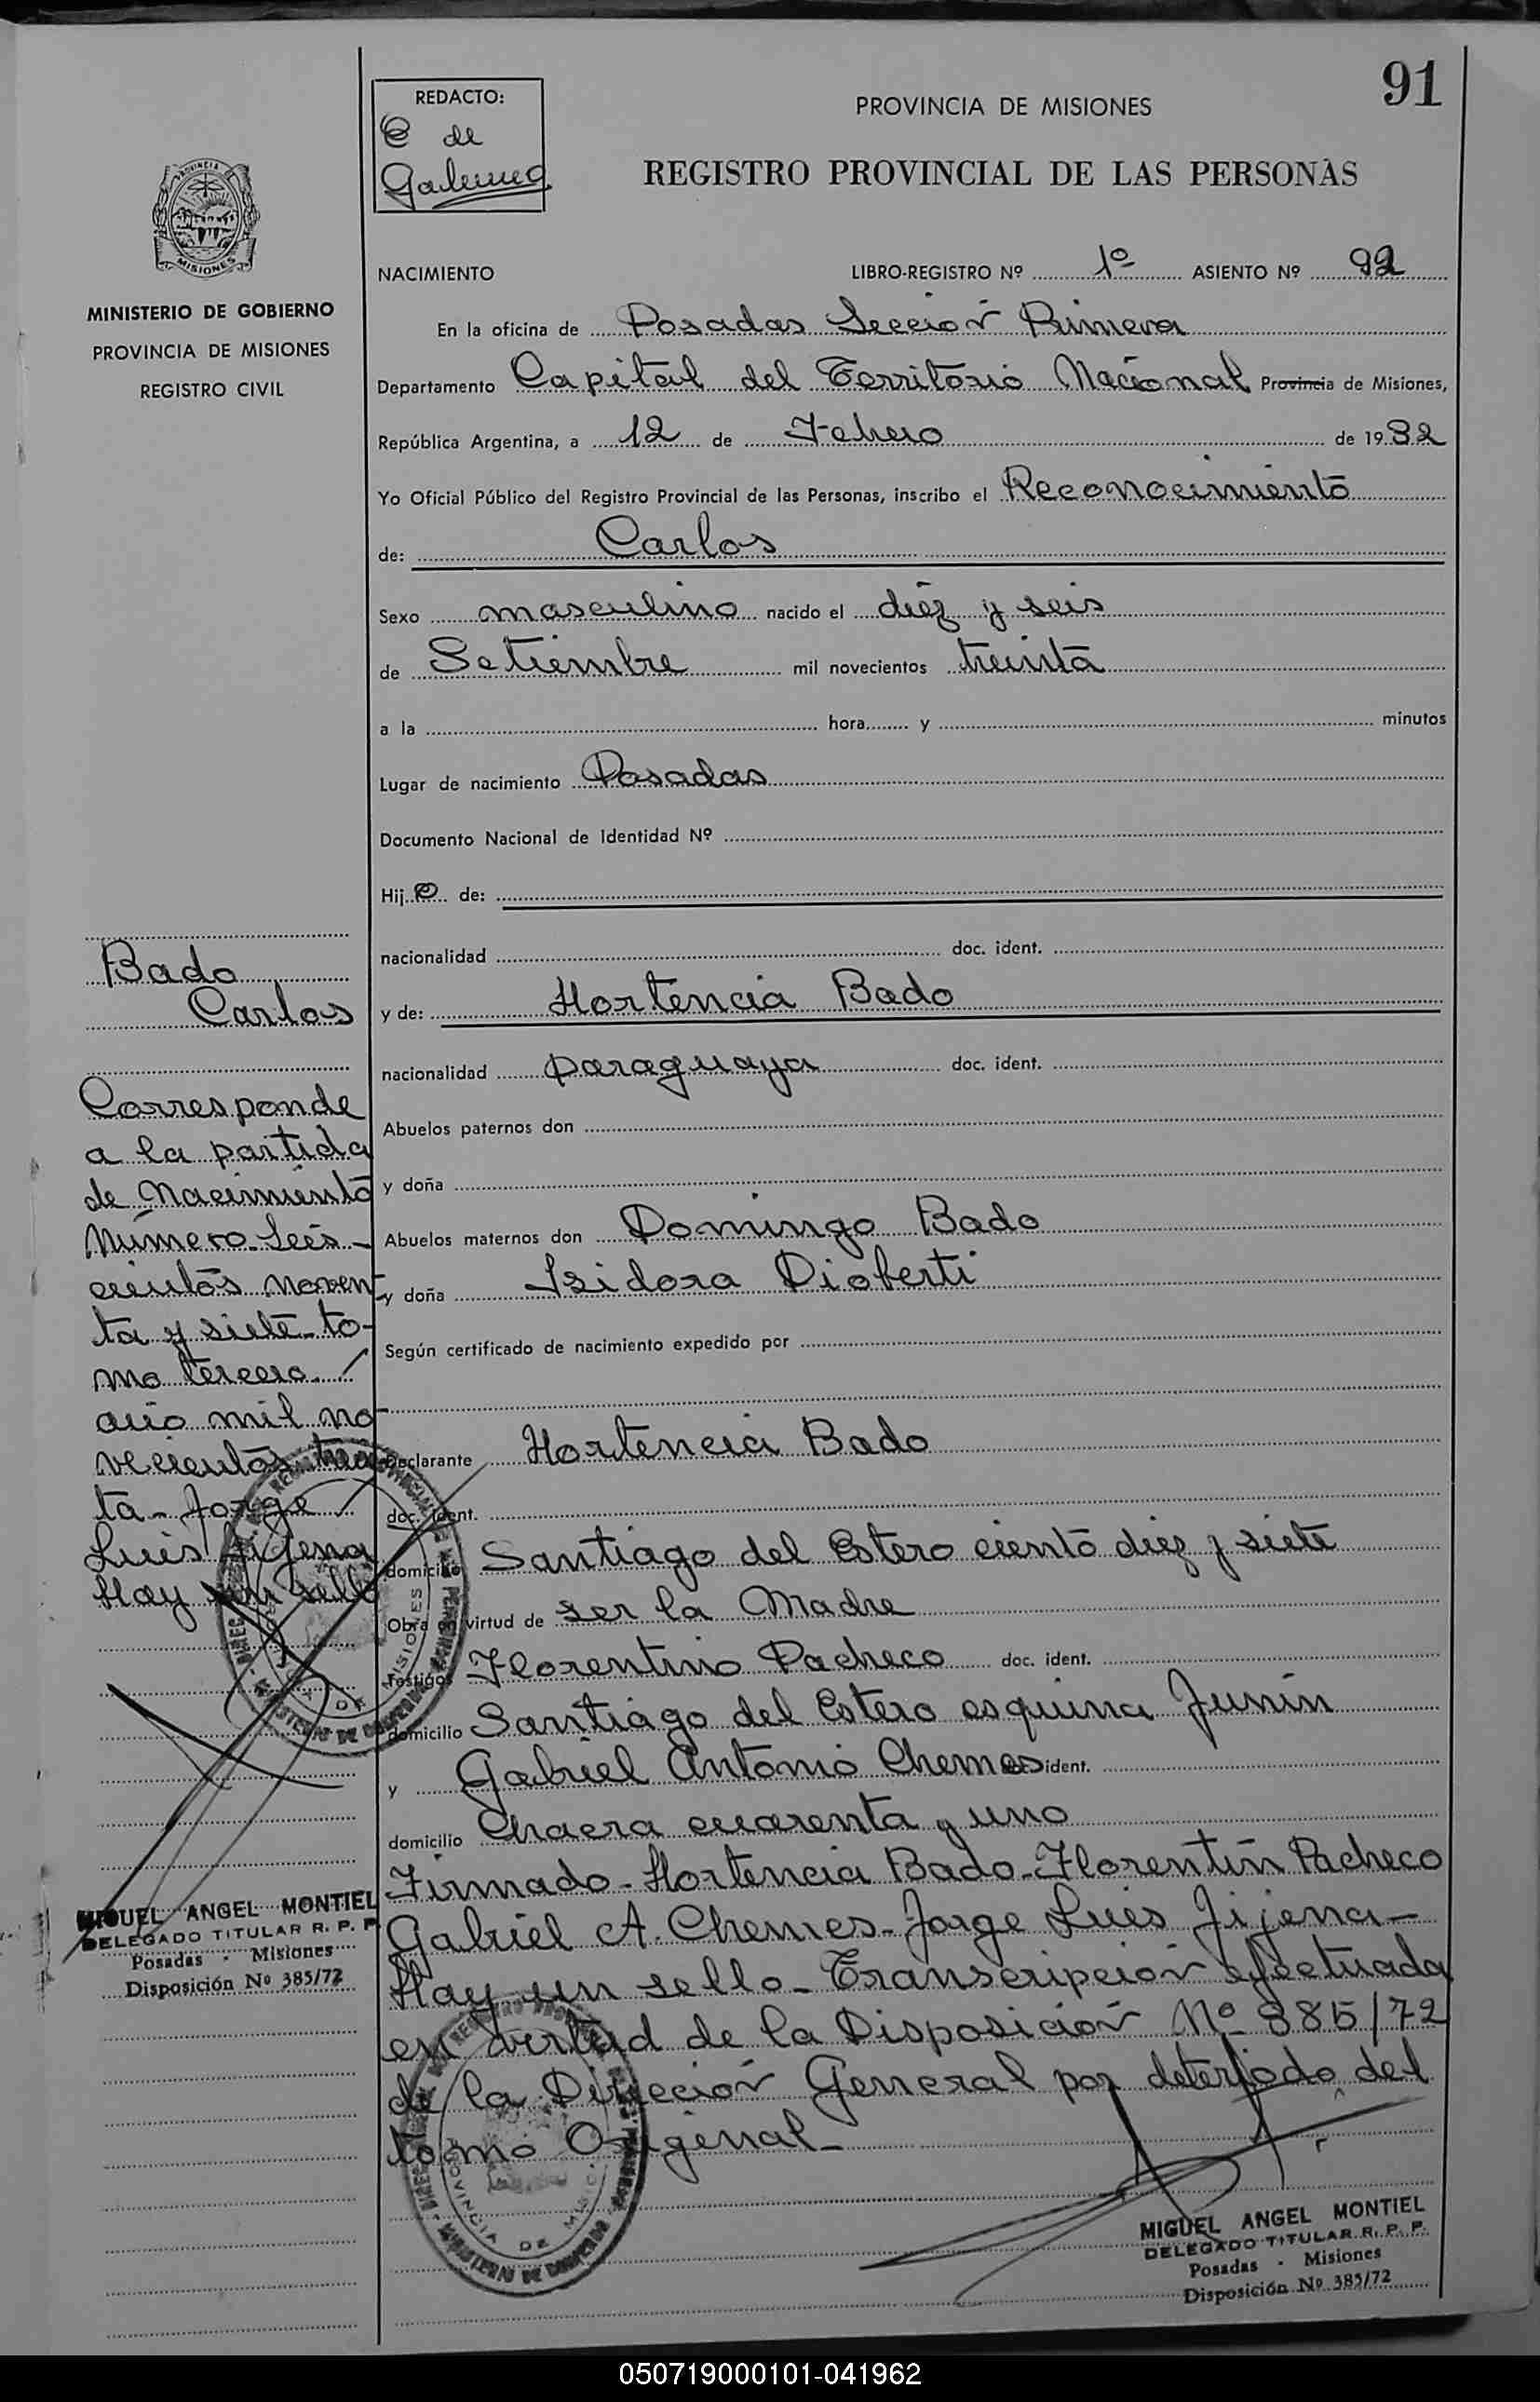 91
REDACTO:
C de
PROVINCIA DE MISIONES
REGISTRO PROVINCIAL DE LAS PERSONAS
MISIONES
MINISTERIO DE GOBIERNO
PROVINCIA DE MISIONES
REGISTRO CIVIL
NACIMIENTO LIBRO-REGISTRO Nº 1º ASIENTO Nº 92
En la oficina de Posadas Sección Primera
Departamento Capital del Territorio Nacional Provincia de Misiones,
República Argentina, a 12 de Febrero de 1932
Yo Oficial Público del Registro Provincial de las Personas, inscribo el Reconocimiento
de: Carlos
Sexo masculino nacido el diéz y seis
de Setiembre mil novecientos treinta
a la hora y minutos
Lugar de nacimiento Posadas
Documento Nacional de Identidad Nº
Hijo de:
nacionalidad doc. ident.
y de: Hortencia Bado
nacionalidad paraguaya doc. ident.
Abuelos paternos don
y doña
Abuelos maternos don Domingo Bado
y doña Isidora Dioberti
Según certificado de nacimiento expedido por
Declarante Hortencia Bado
doc. ident.
domicilio Santiago del Estero ciento diez y siete
Obra en virtud de ser la Madre
Testigos Florentino Pacheco doc. ident.
domicilio Santiago del Estero esquina Junín
y Gabriel Antonio Chemes ident.
domicilio Chacra cuarenta y uno
Firmado - Hortencia Bado - Florentín Pacheco
Gabriel A. Chemes - Jorge Luis Jijena -
Hay un sello - Transcripción efectuada
en virtud de la Disposición Nº 385/72
de la Dirección General por deteriodo del
tomo Original -
Bado
Carlos
Corresponde
a la partida
de Nacimiento
Número Seis-
cientos noven
ta y siete - to-
mo tercero
año mil no
vecientos trein
ta - Jorge
Luis Jijena
Hay un sello
MIGUEL ANGEL MONTIEL
DELEGADO TITULAR R. P. P.
Posadas - Misiones
Disposición Nº 385/72
MIGUEL ANGEL MONTIEL
DELEGADO TITULAR R. P. P.
Posadas - Misiones
Disposición Nº 385/72
050719000101-041962